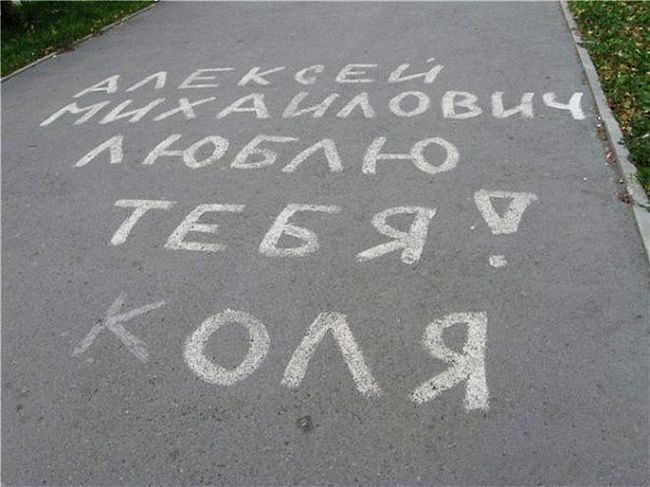 АЛЕКСЕЙ
МИХАИЛОВИЧ
ЛЮБЛЮ
ТЕБЯ!
КОЛЯ